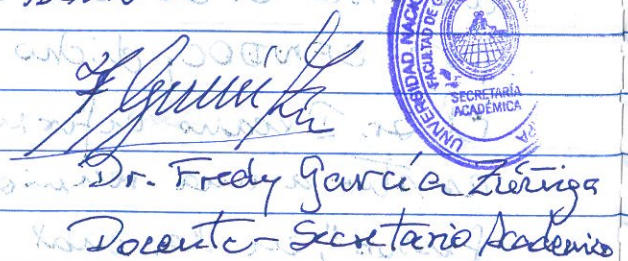 UNIVERSIDAD NAC
FACULTAD DE
SECRETARÍA
ACADÉMICA
Dr. Fredy García Zúñiga
Docente - Secretario Académico